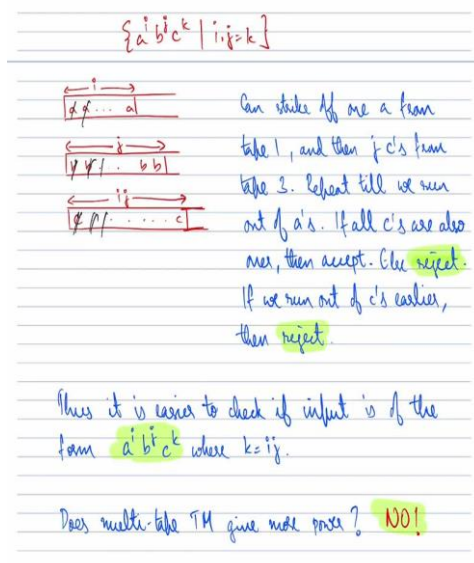 {aⁱbʲcᵏ | i.j=k}
i
a a ... a
Can strike off one a from
j
tape 1, and then j c's from
b b . b b
tape 3. Repeat till we run
ij
out of a's. If all c's are also
c ... c
over, then accept. Else reject.
If we run out of c's earlier,
then reject.
Thus it is easier to check if input is of the
form aⁱbʲcᵏ where k=ij.
Does multi-tape TM give more power? NO!